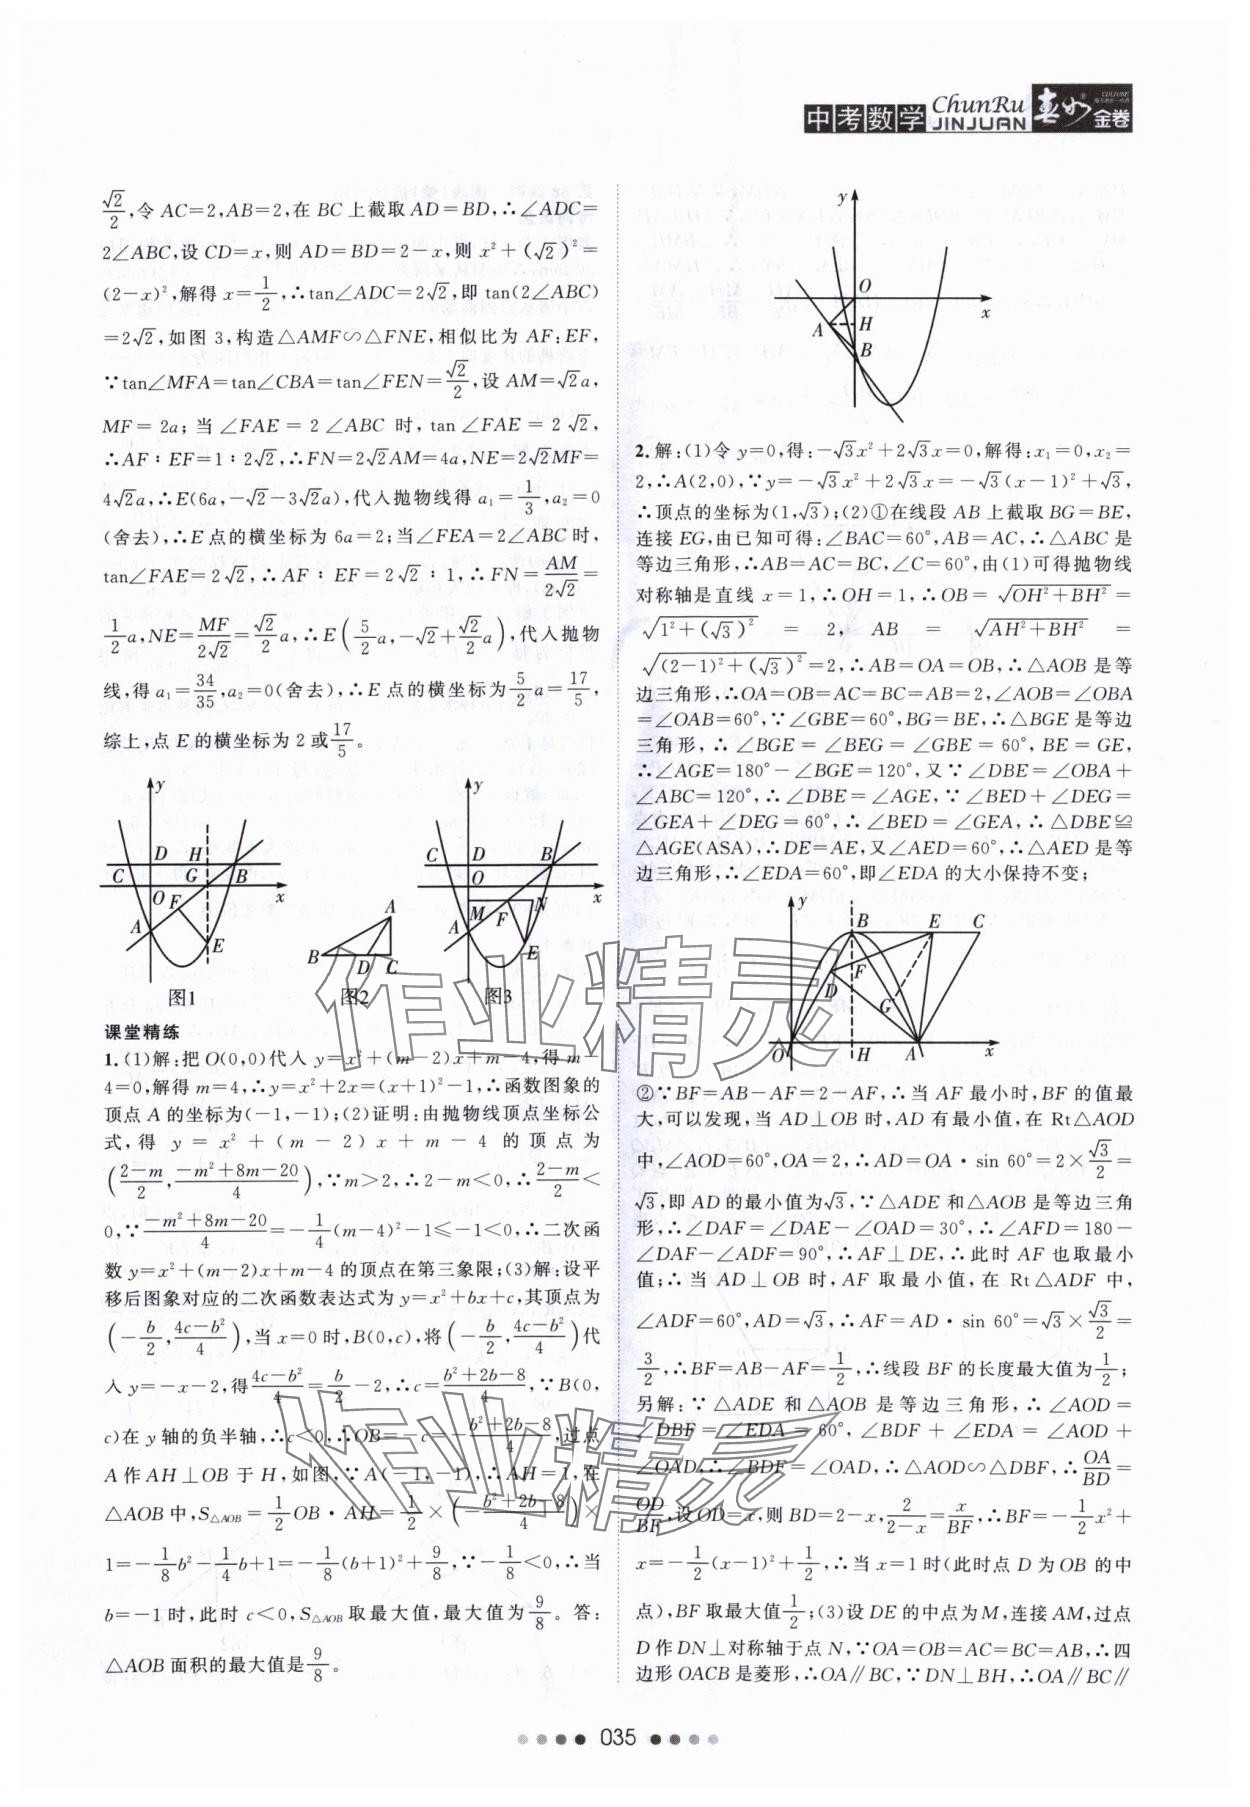 中考数学 ChunRu JINJUAN 春如金卷
√2/2,令 AC=2,AB=2,在 BC 上截取 AD=BD,∴∠ADC=
2∠ABC,设 CD=x,则 AD=BD=2-x,则 x²+(√2)²=
(2-x)²,解得 x=1/2,∴tan∠ADC=2√2,即 tan(2∠ABC)
=2√2,如图 3,构造△AMF∽△FNE,相似比为 AF:EF,
∵tan∠MFA=tan∠CBA=tan∠FEN=√2/2,设 AM=√2a,
MF=2a;当∠FAE=2∠ABC 时,tan∠FAE=2√2,
∴AF:EF=1:2√2,∴FN=2√2AM=4a,NE=2√2MF=
4√2a,∴E(6a,-√2-3√2a),代入抛物线得 a₁=1/3,a₂=0
(舍去),∴E 点的横坐标为 6a=2;当∠FEA=2∠ABC 时,
tan∠FAE=2√2,∴AF:EF=2√2:1,∴FN=AM/2√2=
1/2a,NE=MF/2√2=√2/2a,∴E(5/2a,-√2+√2/2a),代入抛物
线,得 a₁=34/35,a₂=0(舍去),∴E 点的横坐标为5/2a=17/5,
综上,点 E 的横坐标为 2 或17/5。
y
D H
C G B
O F x
A
E
图1
A
B D C
图2
y
C D B
O x
M F N
A
E
图3
课堂精练
1.(1)解:把 O(0,0)代入 y=x²+(m-2)x+m-4,得 m-
4=0,解得 m=4,∴y=x²+2x=(x+1)²-1,∴函数图象的
顶点 A 的坐标为(-1,-1);(2)证明:由抛物线顶点坐标公
式,得 y=x²+(m-2)x+m-4 的顶点为
((2-m)/2,(-m²+8m-20)/4),∵m>2,∴2-m<0,∴(2-m)/2<
0,∵(-m²+8m-20)/4=-1/4(m-4)²-1≤-1<0,∴二次函
数 y=x²+(m-2)x+m-4 的顶点在第三象限;(3)解:设平
移后图象对应的二次函数表达式为 y=x²+bx+c,其顶点为
(-b/2,(4c-b²)/4),当 x=0 时,B(0,c),将(-b/2,(4c-b²)/4)代
入 y=-x-2,得(4c-b²)/4=b/2-2,∴c=(b²+2b-8)/4,∵B(0,
c)在 y 轴的负半轴,∴c<0,∴OB=-c=-(b²+2b-8)/4,过点
A 作 AH⊥OB 于 H,如图,∵A(-1,-1),∴AH=1,在
△AOB 中,S△AOB=1/2OB·AH=1/2×(-(b²+2b-8)/4)×
1=-1/8b²-1/4b+1=-1/8(b+1)²+9/8,∵-1/8<0,∴当
b=-1 时,此时 c<0,S△AOB 取最大值,最大值为9/8。答:
△AOB 面积的最大值是9/8。
y
O
A H x
B
2.解:(1)令 y=0,得:-√3x²+2√3x=0,解得:x₁=0,x₂=
2,∴A(2,0),∵y=-√3x²+2√3x=-√3(x-1)²+√3,
∴顶点的坐标为(1,√3);(2)①在线段 AB 上截取 BG=BE,
连接 EG,由已知可得:∠BAC=60°,AB=AC,∴△ABC 是
等边三角形,∴AB=AC=BC,∠C=60°,由(1)可得抛物线
对称轴是直线 x=1,∴OH=1,∴OB=√(OH²+BH²)=
√(1²+(√3)²)=2,AB=√(AH²+BH²)=
√((2-1)²+(√3)²)=2,∴AB=OA=OB,∴△AOB 是等
边三角形,∴OA=OB=AC=BC=AB=2,∠AOB=∠OBA
=∠OAB=60°,∵∠GBE=60°,BG=BE,∴△BGE 是等边
三角形,∴∠BGE=∠BEG=∠GBE=60°,BE=GE,
∴∠AGE=180°-∠BGE=120°,又∵∠DBE=∠OBA+
∠ABC=120°,∴∠DBE=∠AGE,∵∠BED+∠DEG=
∠GEA+∠DEG=60°,∴∠BED=∠GEA,∴△DBE≌
△AGE(ASA),∴DE=AE,又∠AED=60°,∴△AED 是等边
三角形,∴∠EDA=60°,即∠EDA 的大小保持不变;
y
B E C
D F
G
O H A x
②∵BF=AB-AF=2-AF,∴当 AF 最小时,BF 的值最
大,可以发现,当 AD⊥OB 时,AD 有最小值,在 Rt△AOD
中,∠AOD=60°,OA=2,∴AD=OA·sin 60°=2×√3/2=
√3,即 AD 的最小值为√3,∵△ADE 和△AOB 是等边三角
形,∴∠DAF=∠DAE-∠OAD=30°,∴∠AFD=180-
∠DAF-∠ADF=90°,∴AF⊥DE,∴此时 AF 也取最小
值;∴当 AD⊥OB 时,AF 取最小值,在 Rt△ADF 中,
∠ADF=60°,AD=√3,∴AF=AD·sin 60°=√3×√3/2=
3/2,∴BF=AB-AF=1/2,∴线段 BF 的长度最大值为1/2;
另解:∵△ADE 和△AOB 是等边三角形,∴∠AOD=
∠DBF=∠EDA=60°,∠BDF+∠EDA=∠AOD+
∠OAD,∴∠BDF=∠OAD,∴△AOD∽△DBF,∴OA/BD=
OD/BF,设 OD=x,则 BD=2-x,2/(2-x)=x/BF,∴BF=-1/2x²+
x=-1/2(x-1)²+1/2,∴当 x=1 时(此时点 D 为 OB 的中
点),BF 取最大值1/2;(3)设 DE 的中点为 M,连接 AM,过点
D 作 DN⊥对称轴于点 N,∵OA=OB=AC=BC=AB,∴四
边形 OACB 是菱形,∴OA∥BC,∵DN⊥BH,∴OA∥BC∥
作业精灵
作业精灵
035